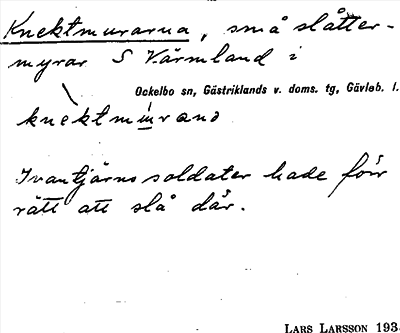 Knektmurarna, små slåtter-
myrar S Värmland i
Ockelbo sn, Gästriklands v. doms. tg, Gävleb. l.
Ivantjärns soldater hade förr
rätt att slå där.
LARS LARSSON 193